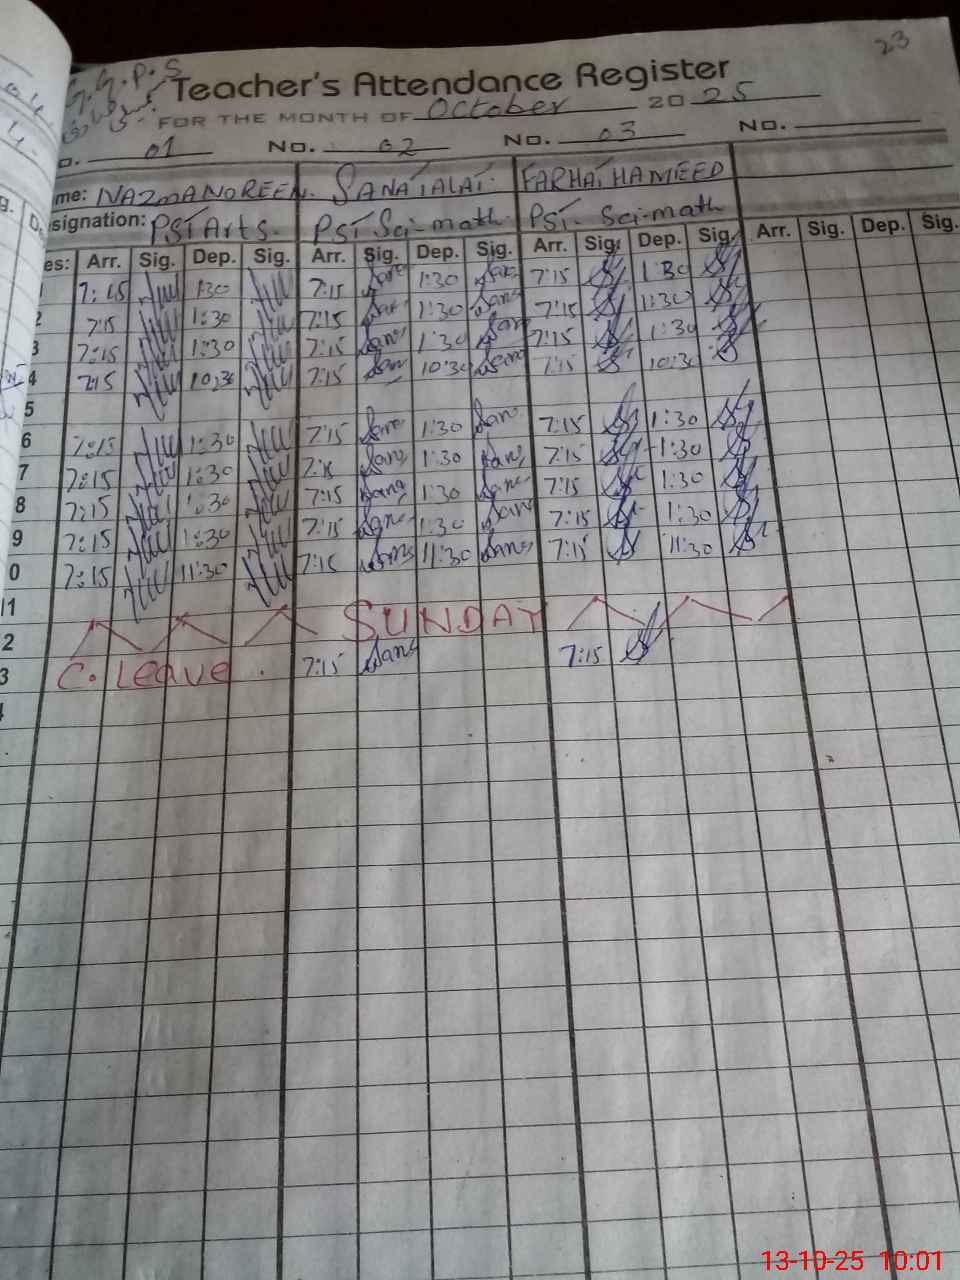 23
G.G.P.S
Teacher's Attendance Register
FOR THE MONTH OF October 2025
o. 01 No. 02 No. 03 No.
me: NAZMA NOREEN. SANA TALAT. FARHAT HAMEED
signation: PST Arts. PST Sci-math. PST. Sci-math
es: Arr. Sig. Dep. Sig. Arr. Sig. Dep. Sig. Arr. Sig. Dep. Sig. Arr. Sig. Dep. Sig.
7:15 1:30 7:15 Sana 1:30 Sana 7:15 1:30
2 7:15 1:30 7:15 Sana 1:30 Sana 7:15 1:30
3 7:15 1:30 7:15 Sana 1:30 Sana 7:15 1:30
4 7:15 10:30 7:15 Sana 10:30 Sana 7:15 10:30
5
6 7:15 1:30 7:15 Sana 1:30 Sana 7:15 1:30
7 7:15 1:30 7:15 Sana 1:30 Sana 7:15 1:30
8 7:15 1:30 7:15 Sana 1:30 Sana 7:15 1:30
9 7:15 1:30 7:15 Sana 1:30 Sana 7:15 1:30
0 7:15 11:30 7:15 Sana 11:30 Sana 7:15 11:30
11
2 SUNDAY
3 C. Leave. 7:15 Sana 7:15
13-10-25 10:01